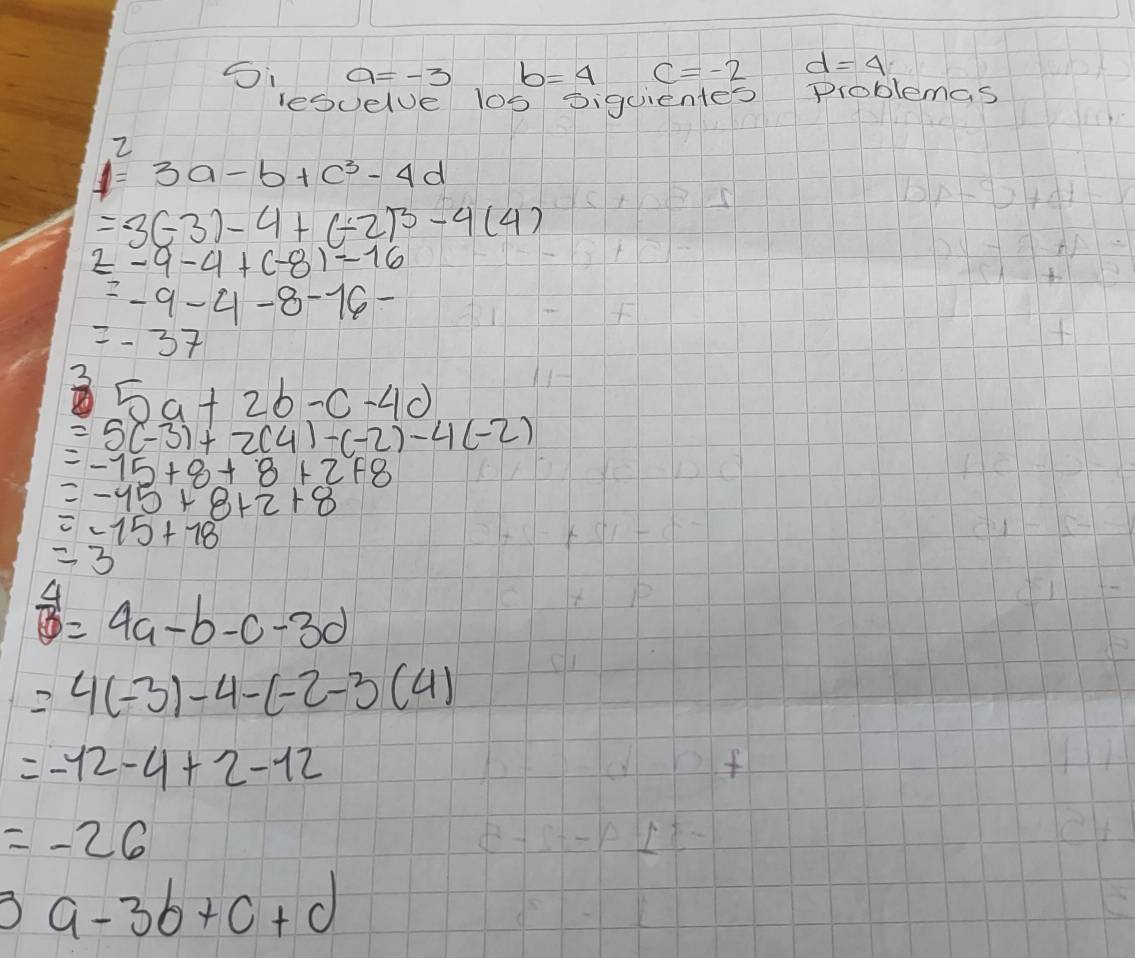 Si a=-3 b=4 c=-2 d=4
resuelve los siguientes problemas
2
1= 3a-b+c³-4d
=3(-3)-4+(-2)³-4(4)
= -9-4+(-8)-16
= -9-4-8-16-
= -37
3
5a+2b-c-4d
= 5(-3)+2(4)-(-2)-4(-2)
= -15+8+8+2+8
= -15+8+2+8
= -15+18
= 3
4
= 4a-b-c-3d
= 4(-3)-4-(-2-3(4)
= -12-4+2-12
= -26
a-3b+c+d